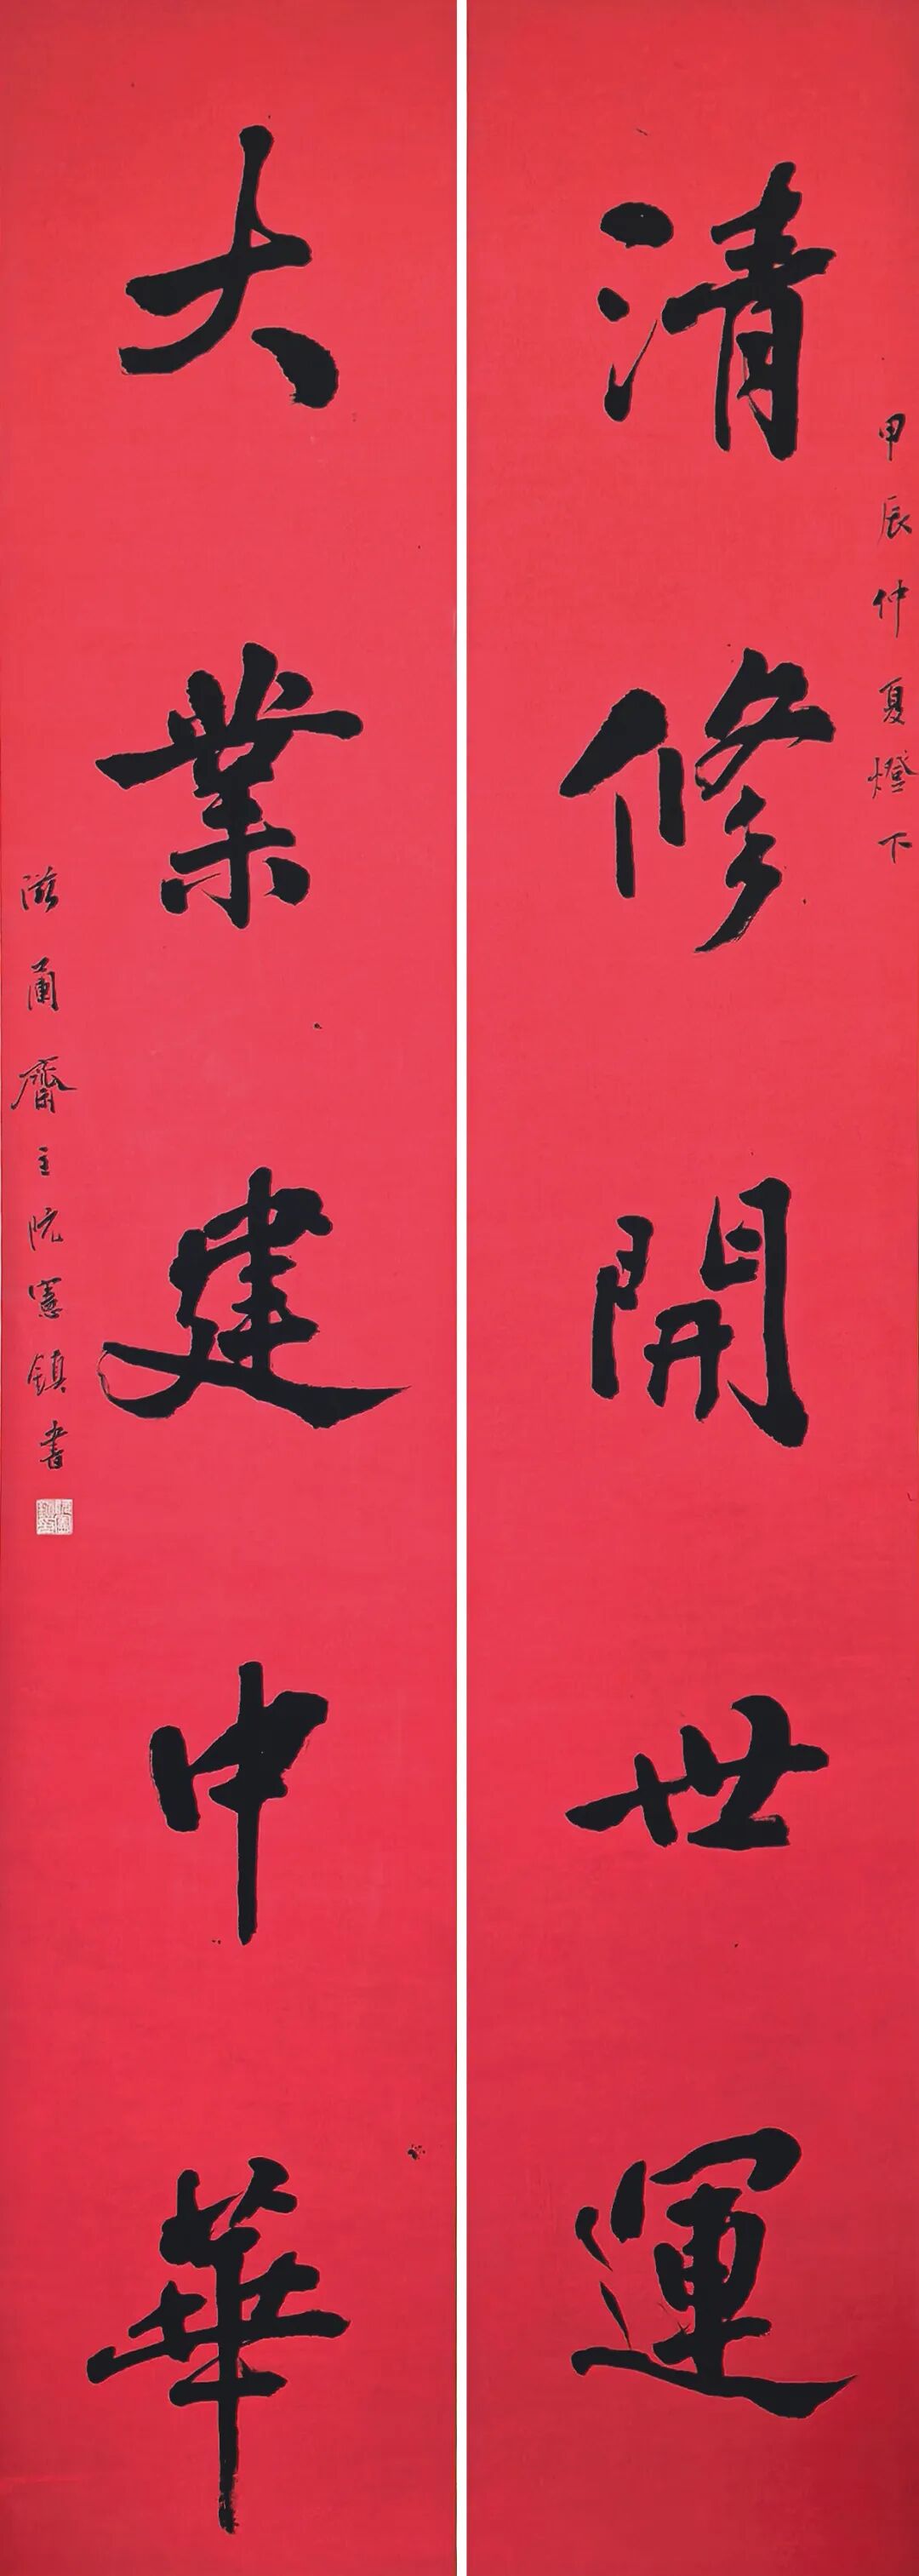 甲辰仲夏燈下
清修開世運
大業建中華
滋蘭齋主阮憲鎮書